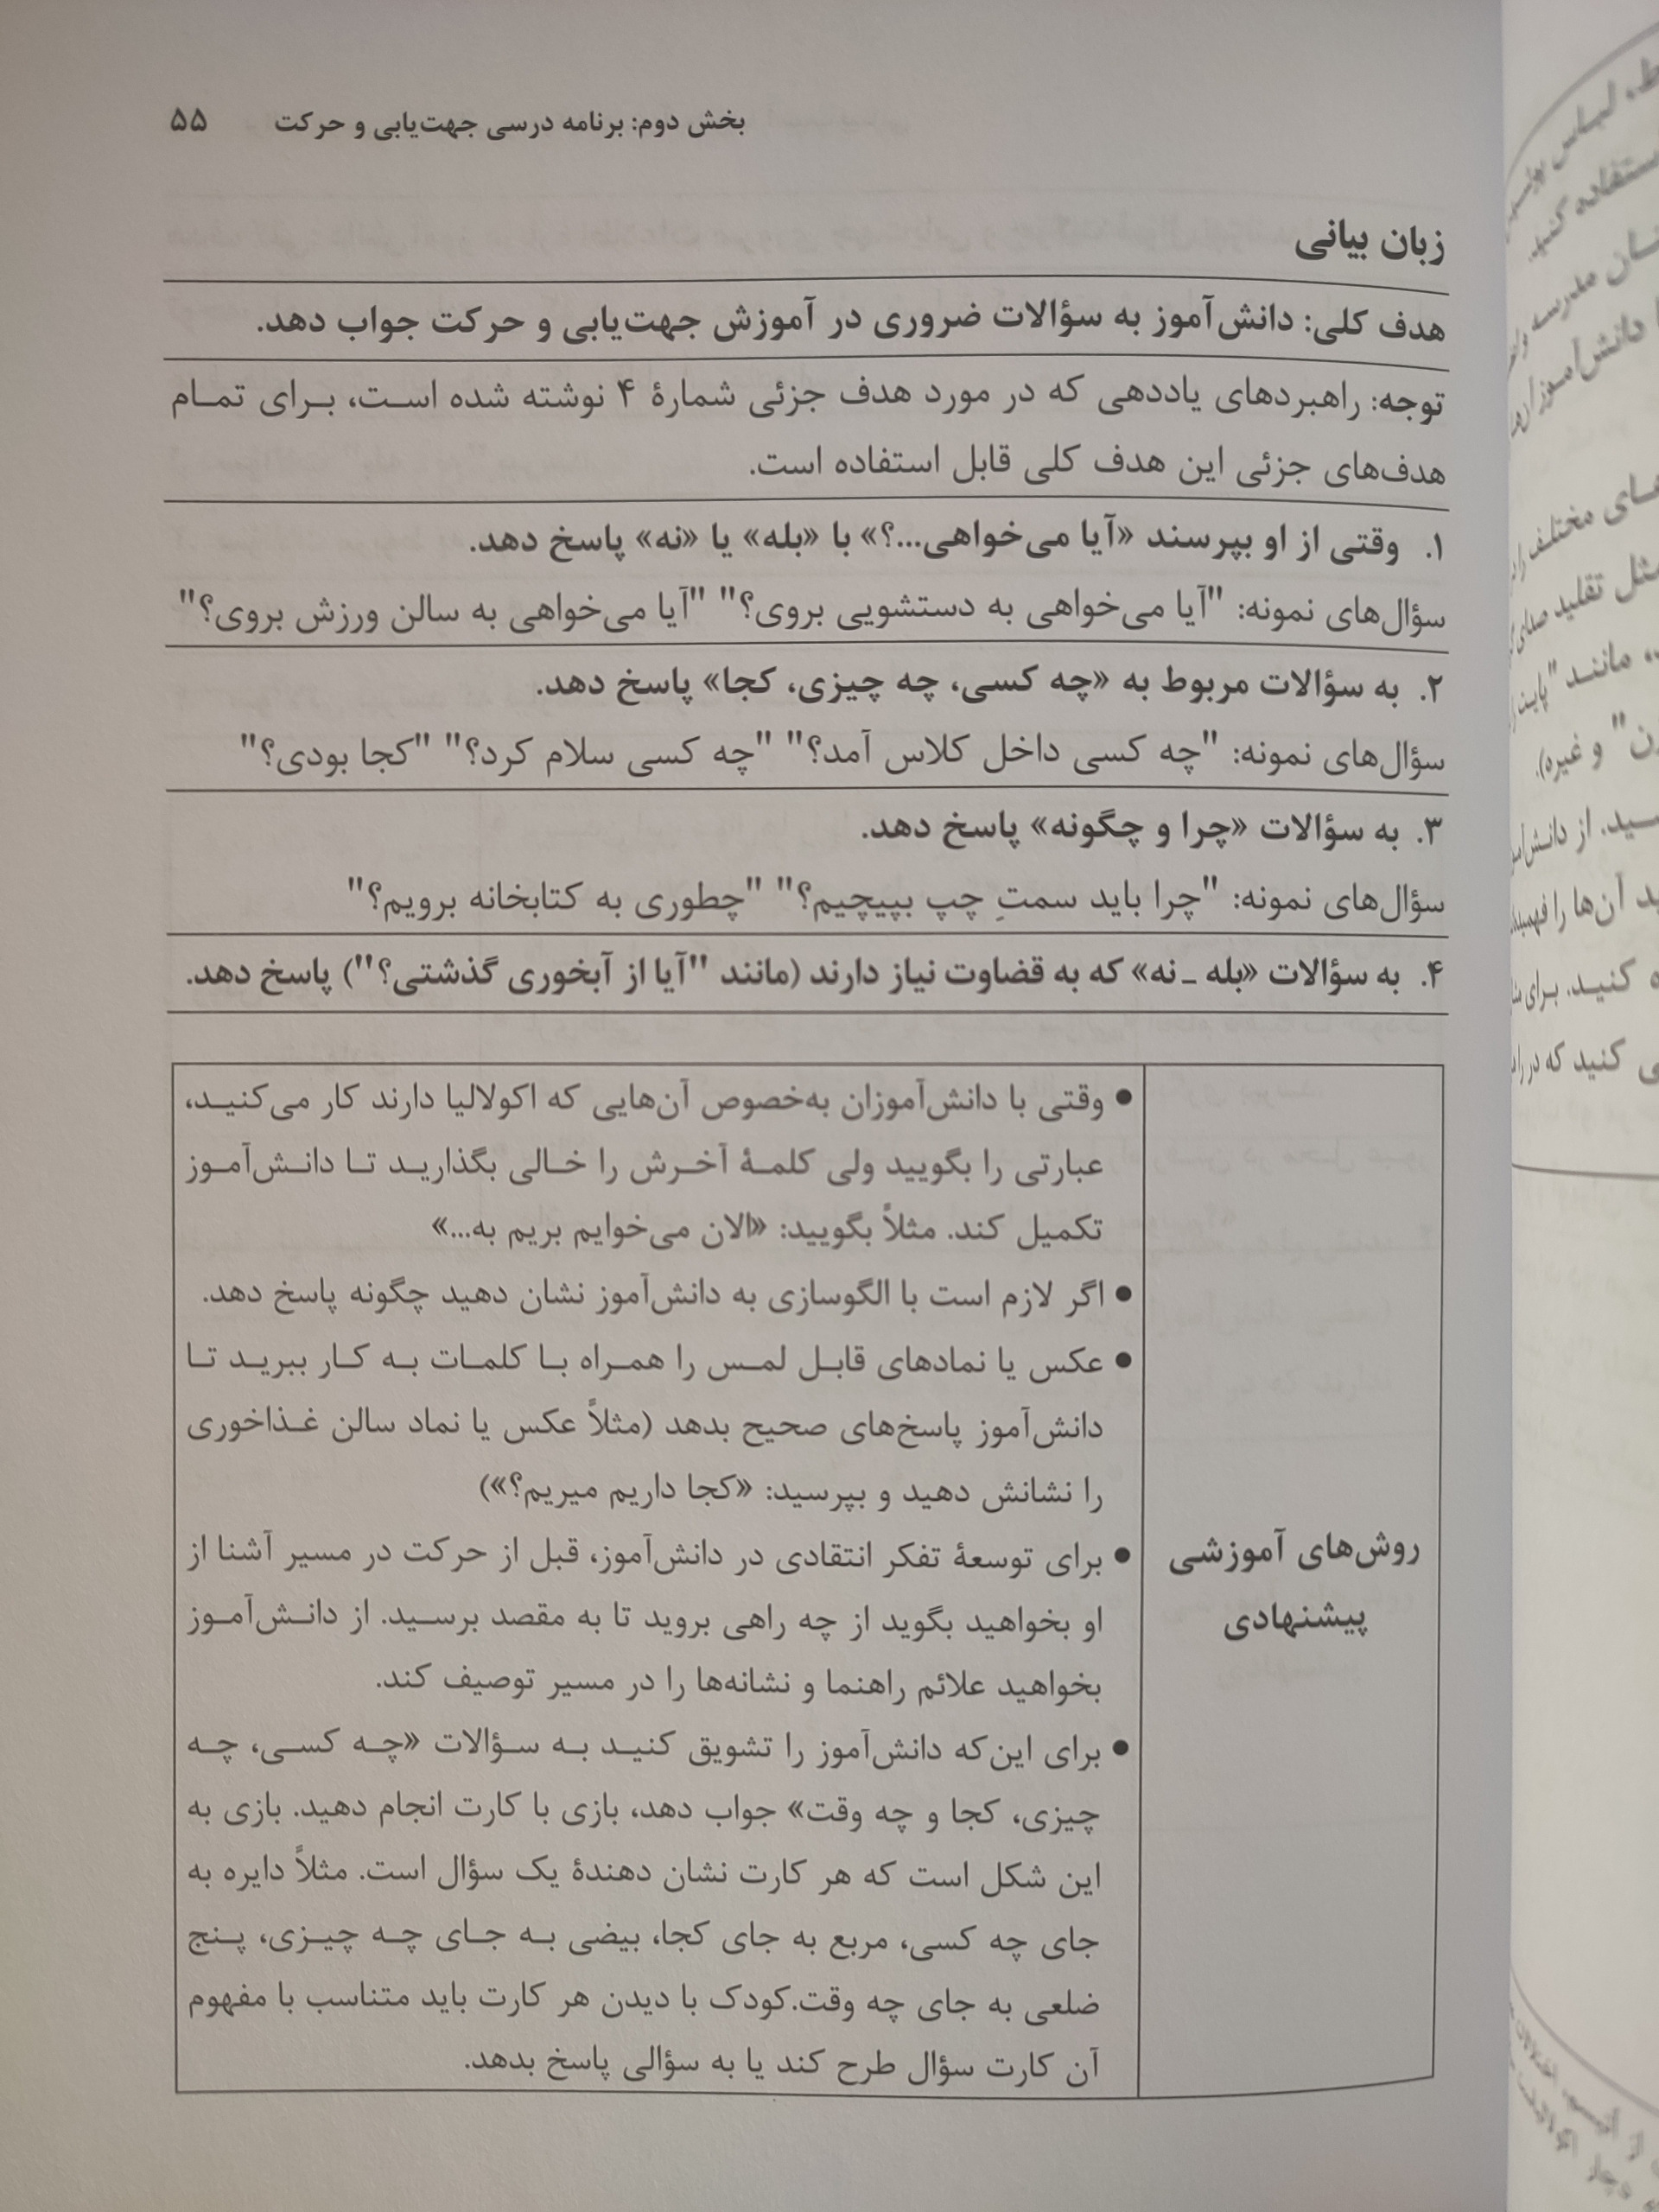 بخش دوم: برنامه درسی جهت‌یابی و حرکت ۵۵
زبان بیانی
هدف کلی: دانش‌آموز به سؤالات ضروری در آموزش جهت‌یابی و حرکت جواب دهد.
توجه: راهبردهای یاددهی که در مورد هدف جزئی شمارهٔ ۴ نوشته شده است، برای تمام
هدف‌های جزئی این هدف کلی قابل استفاده است.
۱. وقتی از او بپرسند «آیا می‌خواهی...؟» با «بله» یا «نه» پاسخ دهد.
سؤال‌های نمونه: "آیا می‌خواهی به دستشویی بروی؟" "آیا می‌خواهی به سالن ورزش بروی؟"
۲. به سؤالات مربوط به «چه کسی، چه چیزی، کجا» پاسخ دهد.
سؤال‌های نمونه: "چه کسی داخل کلاس آمد؟" "چه کسی سلام کرد؟" "کجا بودی؟"
۳. به سؤالات «چرا و چگونه» پاسخ دهد.
سؤال‌های نمونه: "چرا باید سمتِ چپ بپیچیم؟" "چطوری به کتابخانه برویم؟"
۴. به سؤالات «بله ـ نه» که به قضاوت نیاز دارند (مانند "آیا از آبخوری گذشتی؟") پاسخ دهد.
روش‌های آموزشی
پیشنهادی
• وقتی با دانش‌آموزان به‌خصوص آن‌هایی که اکولالیا دارند کار می‌کنید،
عبارتی را بگویید ولی کلمهٔ آخرش را خالی بگذارید تا دانش‌آموز
تکمیل کند. مثلاً بگویید: «الان می‌خوایم بریم به...»
• اگر لازم است با الگوسازی به دانش‌آموز نشان دهید چگونه پاسخ دهد.
• عکس یا نمادهای قابل لمس را همراه با کلمات به کار ببرید تا
دانش‌آموز پاسخ‌های صحیح بدهد (مثلاً عکس یا نماد سالن غذاخوری
را نشانش دهید و بپرسید: «کجا داریم میریم؟»)
• برای توسعهٔ تفکر انتقادی در دانش‌آموز، قبل از حرکت در مسیر آشنا از
او بخواهید بگوید از چه راهی بروید تا به مقصد برسید. از دانش‌آموز
بخواهید علائم راهنما و نشانه‌ها را در مسیر توصیف کند.
• برای این‌که دانش‌آموز را تشویق کنید به سؤالات «چه کسی، چه
چیزی، کجا و چه وقت» جواب دهد، بازی با کارت انجام دهید. بازی به
این شکل است که هر کارت نشان دهندهٔ یک سؤال است. مثلاً دایره به
جای چه کسی، مربع به جای کجا، بیضی به جای چه چیزی، پنج
ضلعی به جای چه وقت.کودک با دیدن هر کارت باید متناسب با مفهوم
آن کارت سؤال طرح کند یا به سؤالی پاسخ بدهد.
لباس
استفاده کنید.
مدرسه
دانش‌آموز
های مختلف
مثل تقلید صدای
مانند "پایید
و غیره).
از
آن‌ها را
کنید. برای
کنید که در